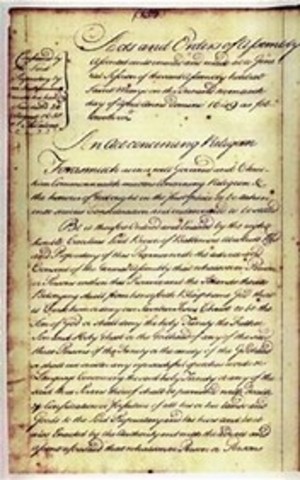 Confirmed by
the Lord
Proprietary
Acts and Orders of Assembly
assented unto enacted and made at a Gene
rall Session of the said Assembly held at
Saint Maryes on the
day of Aprill Anno Domini 1649 as fol
loweth
An Act concerning Religion
Forasmuch as in a well Governed and Chris
tian Commonwealth matters concerning Religion &
the honour of God ought in the first place to be taken
into serious Consideration and endeavoured to be settled
Be it therefore Ordained and Enacted by the right
Lord Baron of Baltemore absolute Lord
and Proprietary of this Province with the advice and
Consent of this Generall Assembly that whatsoever Person
or Persons within this Province and the Islands thereunto
Belonging shall from henceforth Blaspheme God that
is Curse him or deny our Saviour Jesus Christ to be the
Son of God or shall deny the holy Trinity the Father
Son and Holy Ghost or the Godhead of any of the said
three Persons of the Trinity or the unity of the Godhead
or shall use or utter any reproachful words or
Language Concerning the said holy Trinity or any of the
said three Persons thereof shall be punished with Death
& Confiscation or forfeiture of all his or her Lands and
Goods to the Lord Proprietary and his heires and be it
also Enacted by the Authority and with the advice and
assent aforesaid that whatsoever Person or Persons